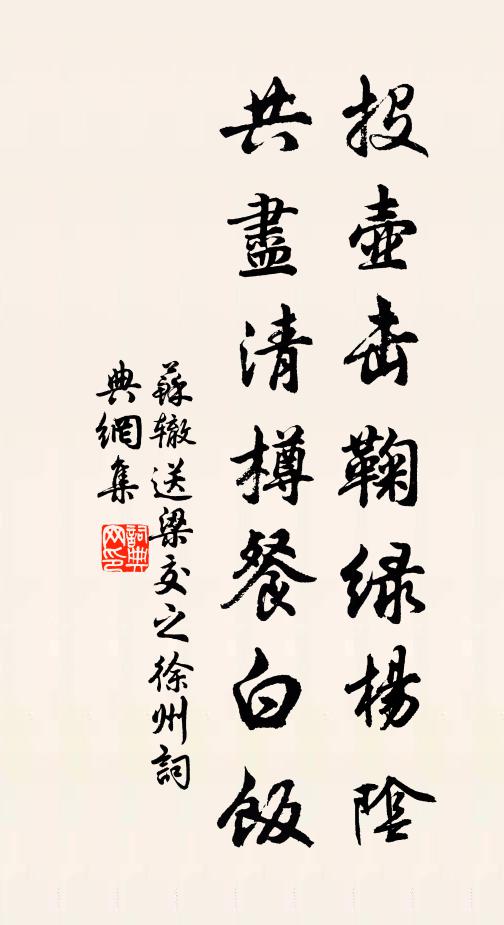 投壺击鞠緑楊陰
共盡清樽餐白飯
蘇辙送梁交之徐州詞
典網集
詞典网印